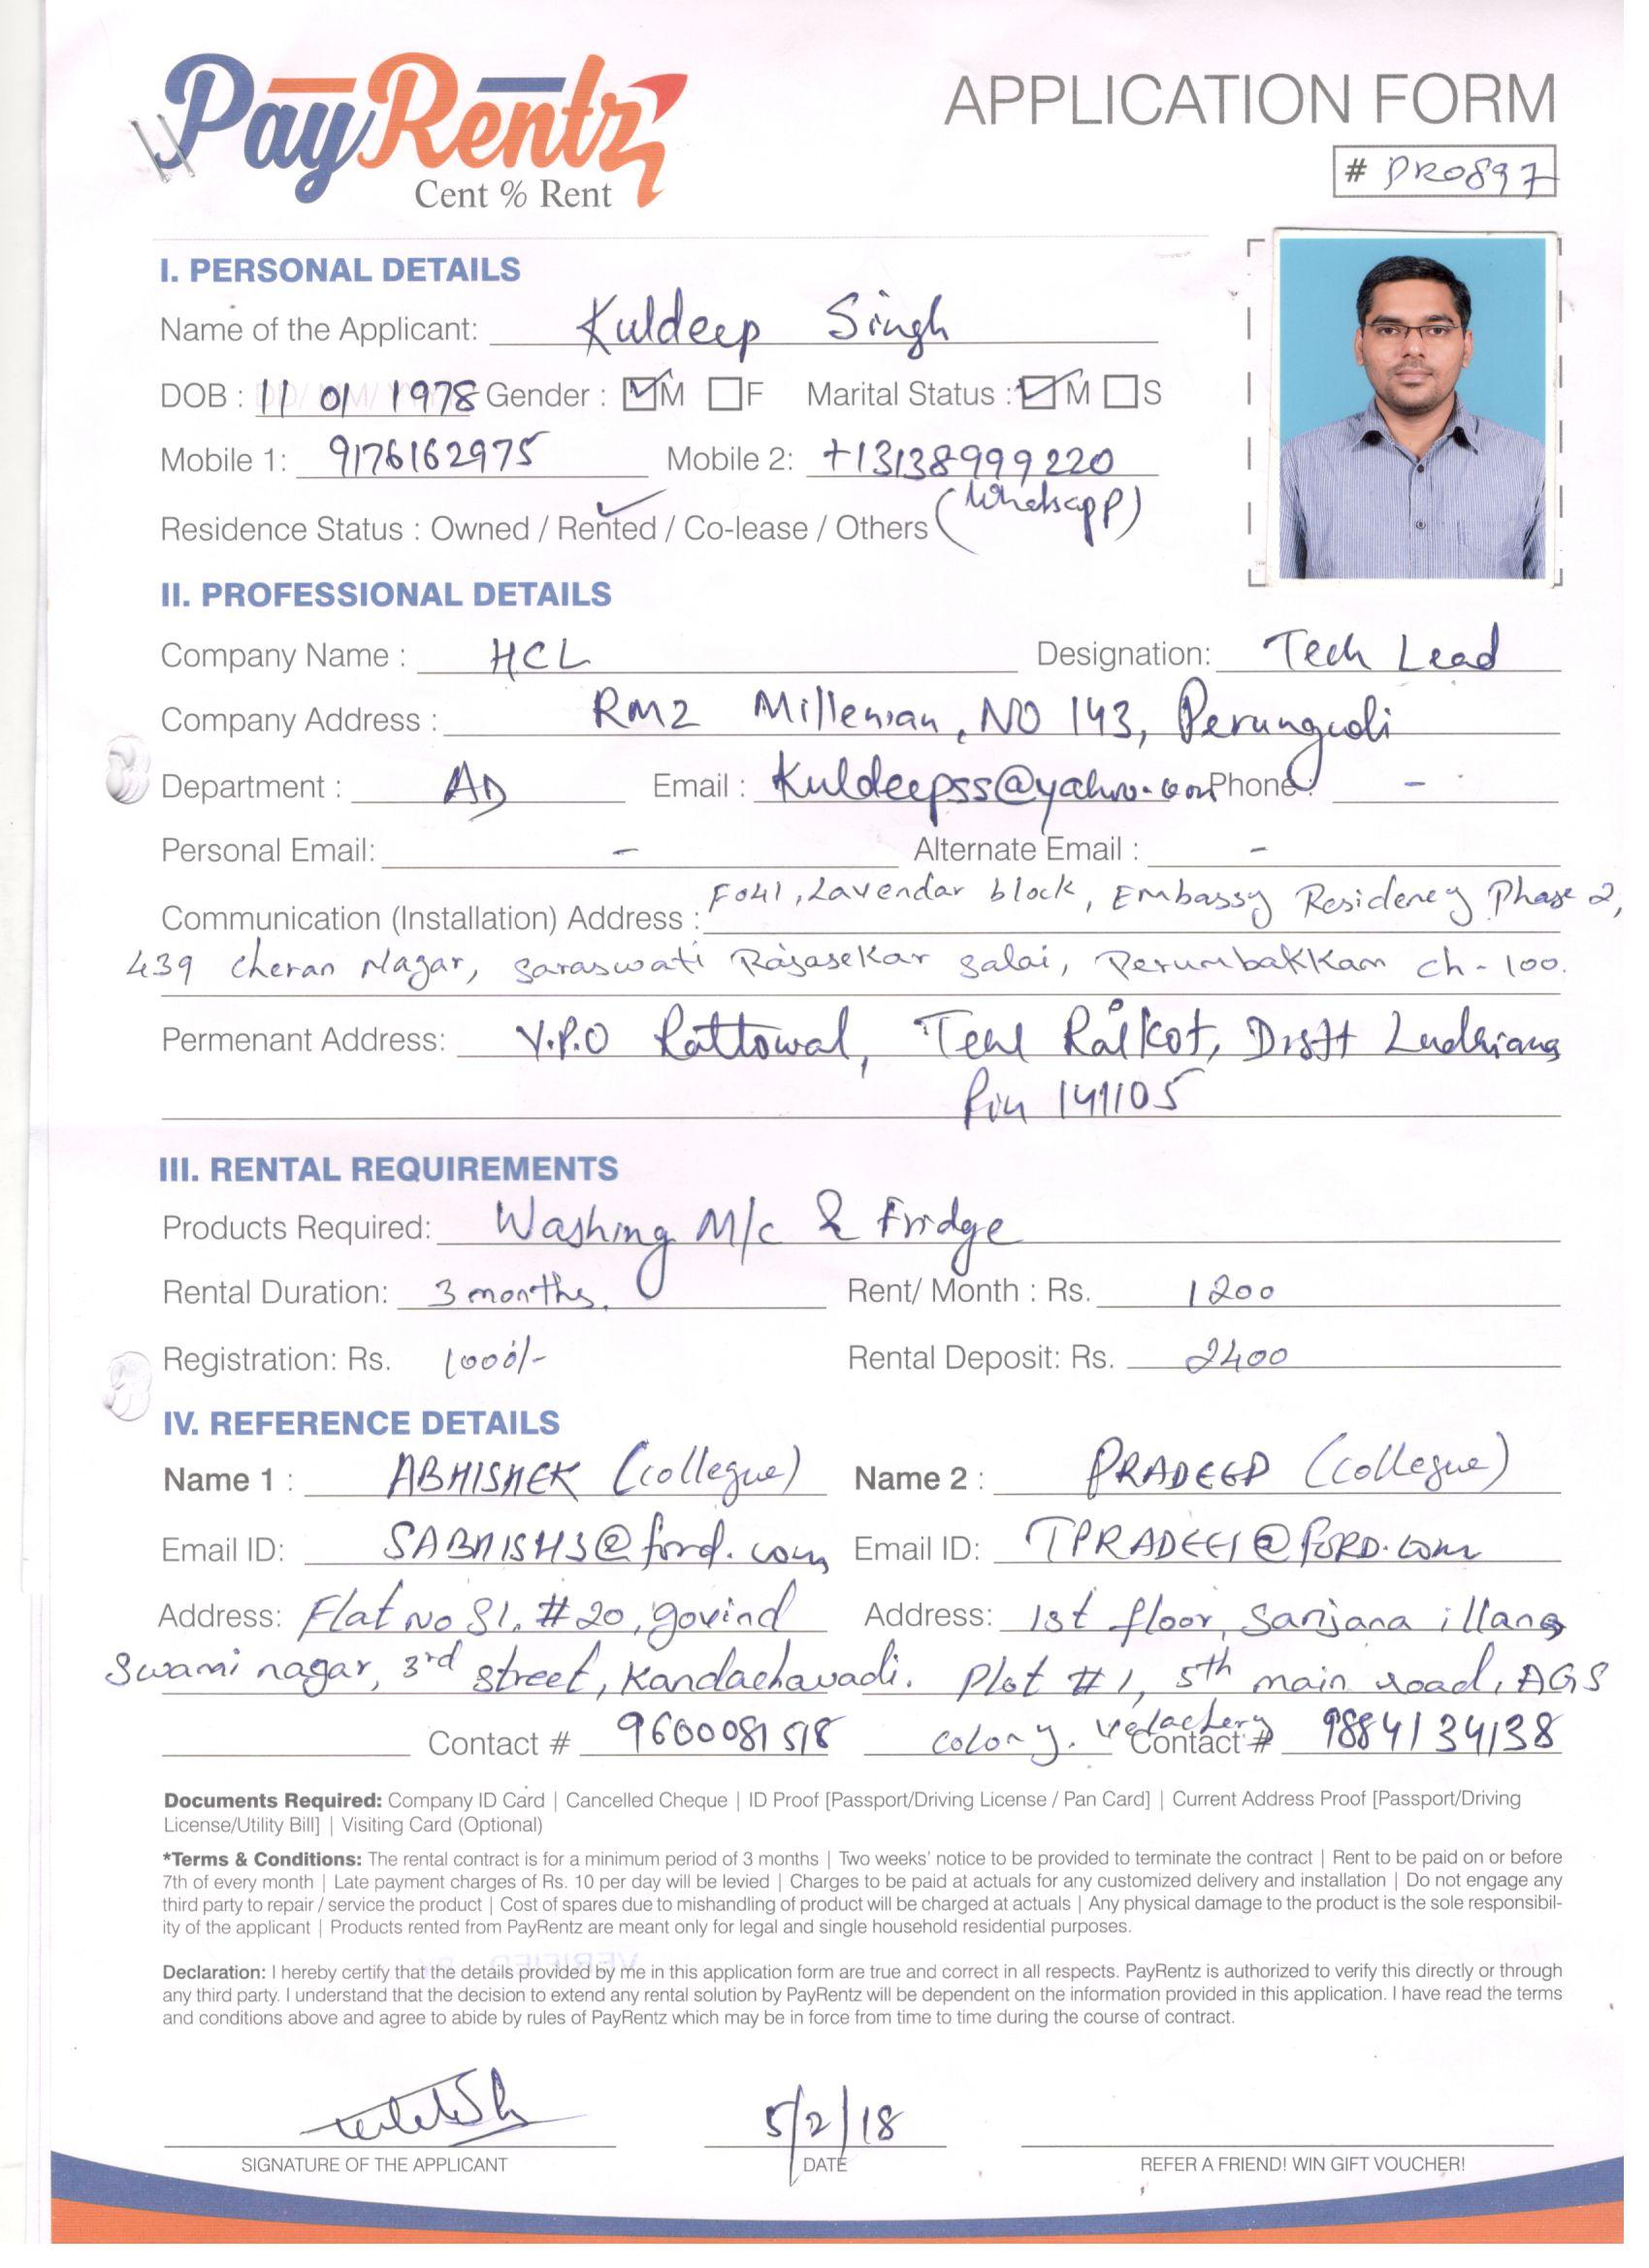 PayRentz
Cent % Rent
APPLICATION FORM
# PR0897
I. PERSONAL DETAILS
Name of the Applicant: Kuldeep Singh
DOB : 11 01 1978 Gender : M F Marital Status : M S
Mobile 1: 9176162975 Mobile 2: +13138999220
(Whatsapp)
Residence Status : Owned / Rented / Co-lease / Others
II. PROFESSIONAL DETAILS
Company Name : HCL Designation: Tech Lead
Company Address : RMZ Millenian, NO 143, Perungudi
Department : AD Email : Kuldeepss@yahoo.com Phone : -
Personal Email: - Alternate Email : -
Communication (Installation) Address : F041, Lavendar block, Embassy Residency Phase 2,
439 Cheran Nagar, Saraswati Rajasekar Salai, Perumbakkam ch - 100.
Permenant Address: V.P.O Rattowal, Tehl Raikot, Distt Ludhiana
Pin 141105
III. RENTAL REQUIREMENTS
Products Required: Washing M/c & Fridge
Rental Duration: 3 months. Rent/ Month : Rs. 1200
Registration: Rs. 1000/- Rental Deposit: Rs. 2400
IV. REFERENCE DETAILS
Name 1 : ABHISHEK (collegue) Name 2 : PRADEEP (collegue)
Email ID: SABHISH3@ford.com Email ID: TPRADEE1@FORD.com
Address: Flat No S1, #20, govind Address: 1st floor, Sanjana illang
Swami nagar, 3rd street, Kandachavadi. Plot #1, 5th main road, AGS
Contact # 9600081518 colony. velachery Contact # 9884134138
Documents Required: Company ID Card | Cancelled Cheque | ID Proof [Passport/Driving License / Pan Card] | Current Address Proof [Passport/Driving
License/Utility Bill] | Visiting Card (Optional)
*Terms & Conditions: The rental contract is for a minimum period of 3 months | Two weeks' notice to be provided to terminate the contract | Rent to be paid on or before
7th of every month | Late payment charges of Rs. 10 per day will be levied | Charges to be paid at actuals for any customized delivery and installation | Do not engage any
third party to repair / service the product | Cost of spares due to mishandling of product will be charged at actuals | Any physical damage to the product is the sole responsibil-
ity of the applicant | Products rented from PayRentz are meant only for legal and single household residential purposes.
Declaration: I hereby certify that the details provided by me in this application form are true and correct in all respects. PayRentz is authorized to verify this directly or through
any third party. I understand that the decision to extend any rental solution by PayRentz will be dependent on the information provided in this application. I have read the terms
and conditions above and agree to abide by rules of PayRentz which may be in force from time to time during the course of contract.
5/2/18
SIGNATURE OF THE APPLICANT DATE REFER A FRIEND! WIN GIFT VOUCHER!